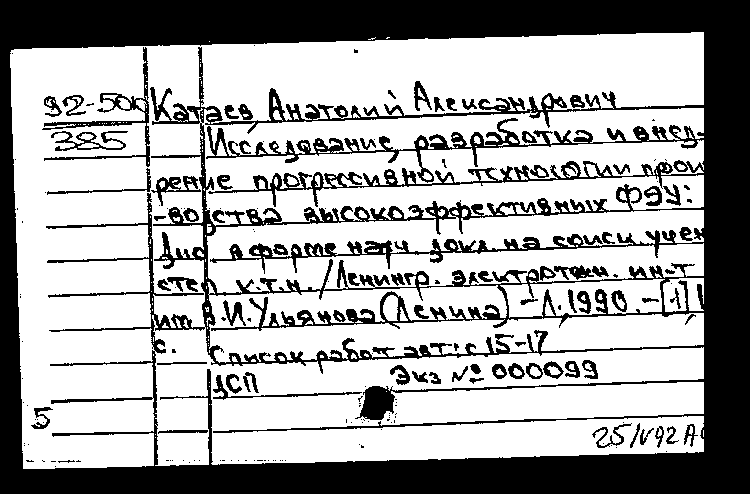 92-500 Катаев, Анатолий Александрович
385 Исследование, разработка и внед-
рение прогрессивной технологии прои
-водства высокоэффективных ФЭУ:
Дис. в форме науч. докл. на соиск. учен
степ. к.т.н. / Ленингр. электротехн. ин-т
им. В.И. Ульянова (Ленина) - Л., 1990. - [1],
с.
Список работ авт.: с 15-17
ДСП Экз № 000099
5
25/IV92